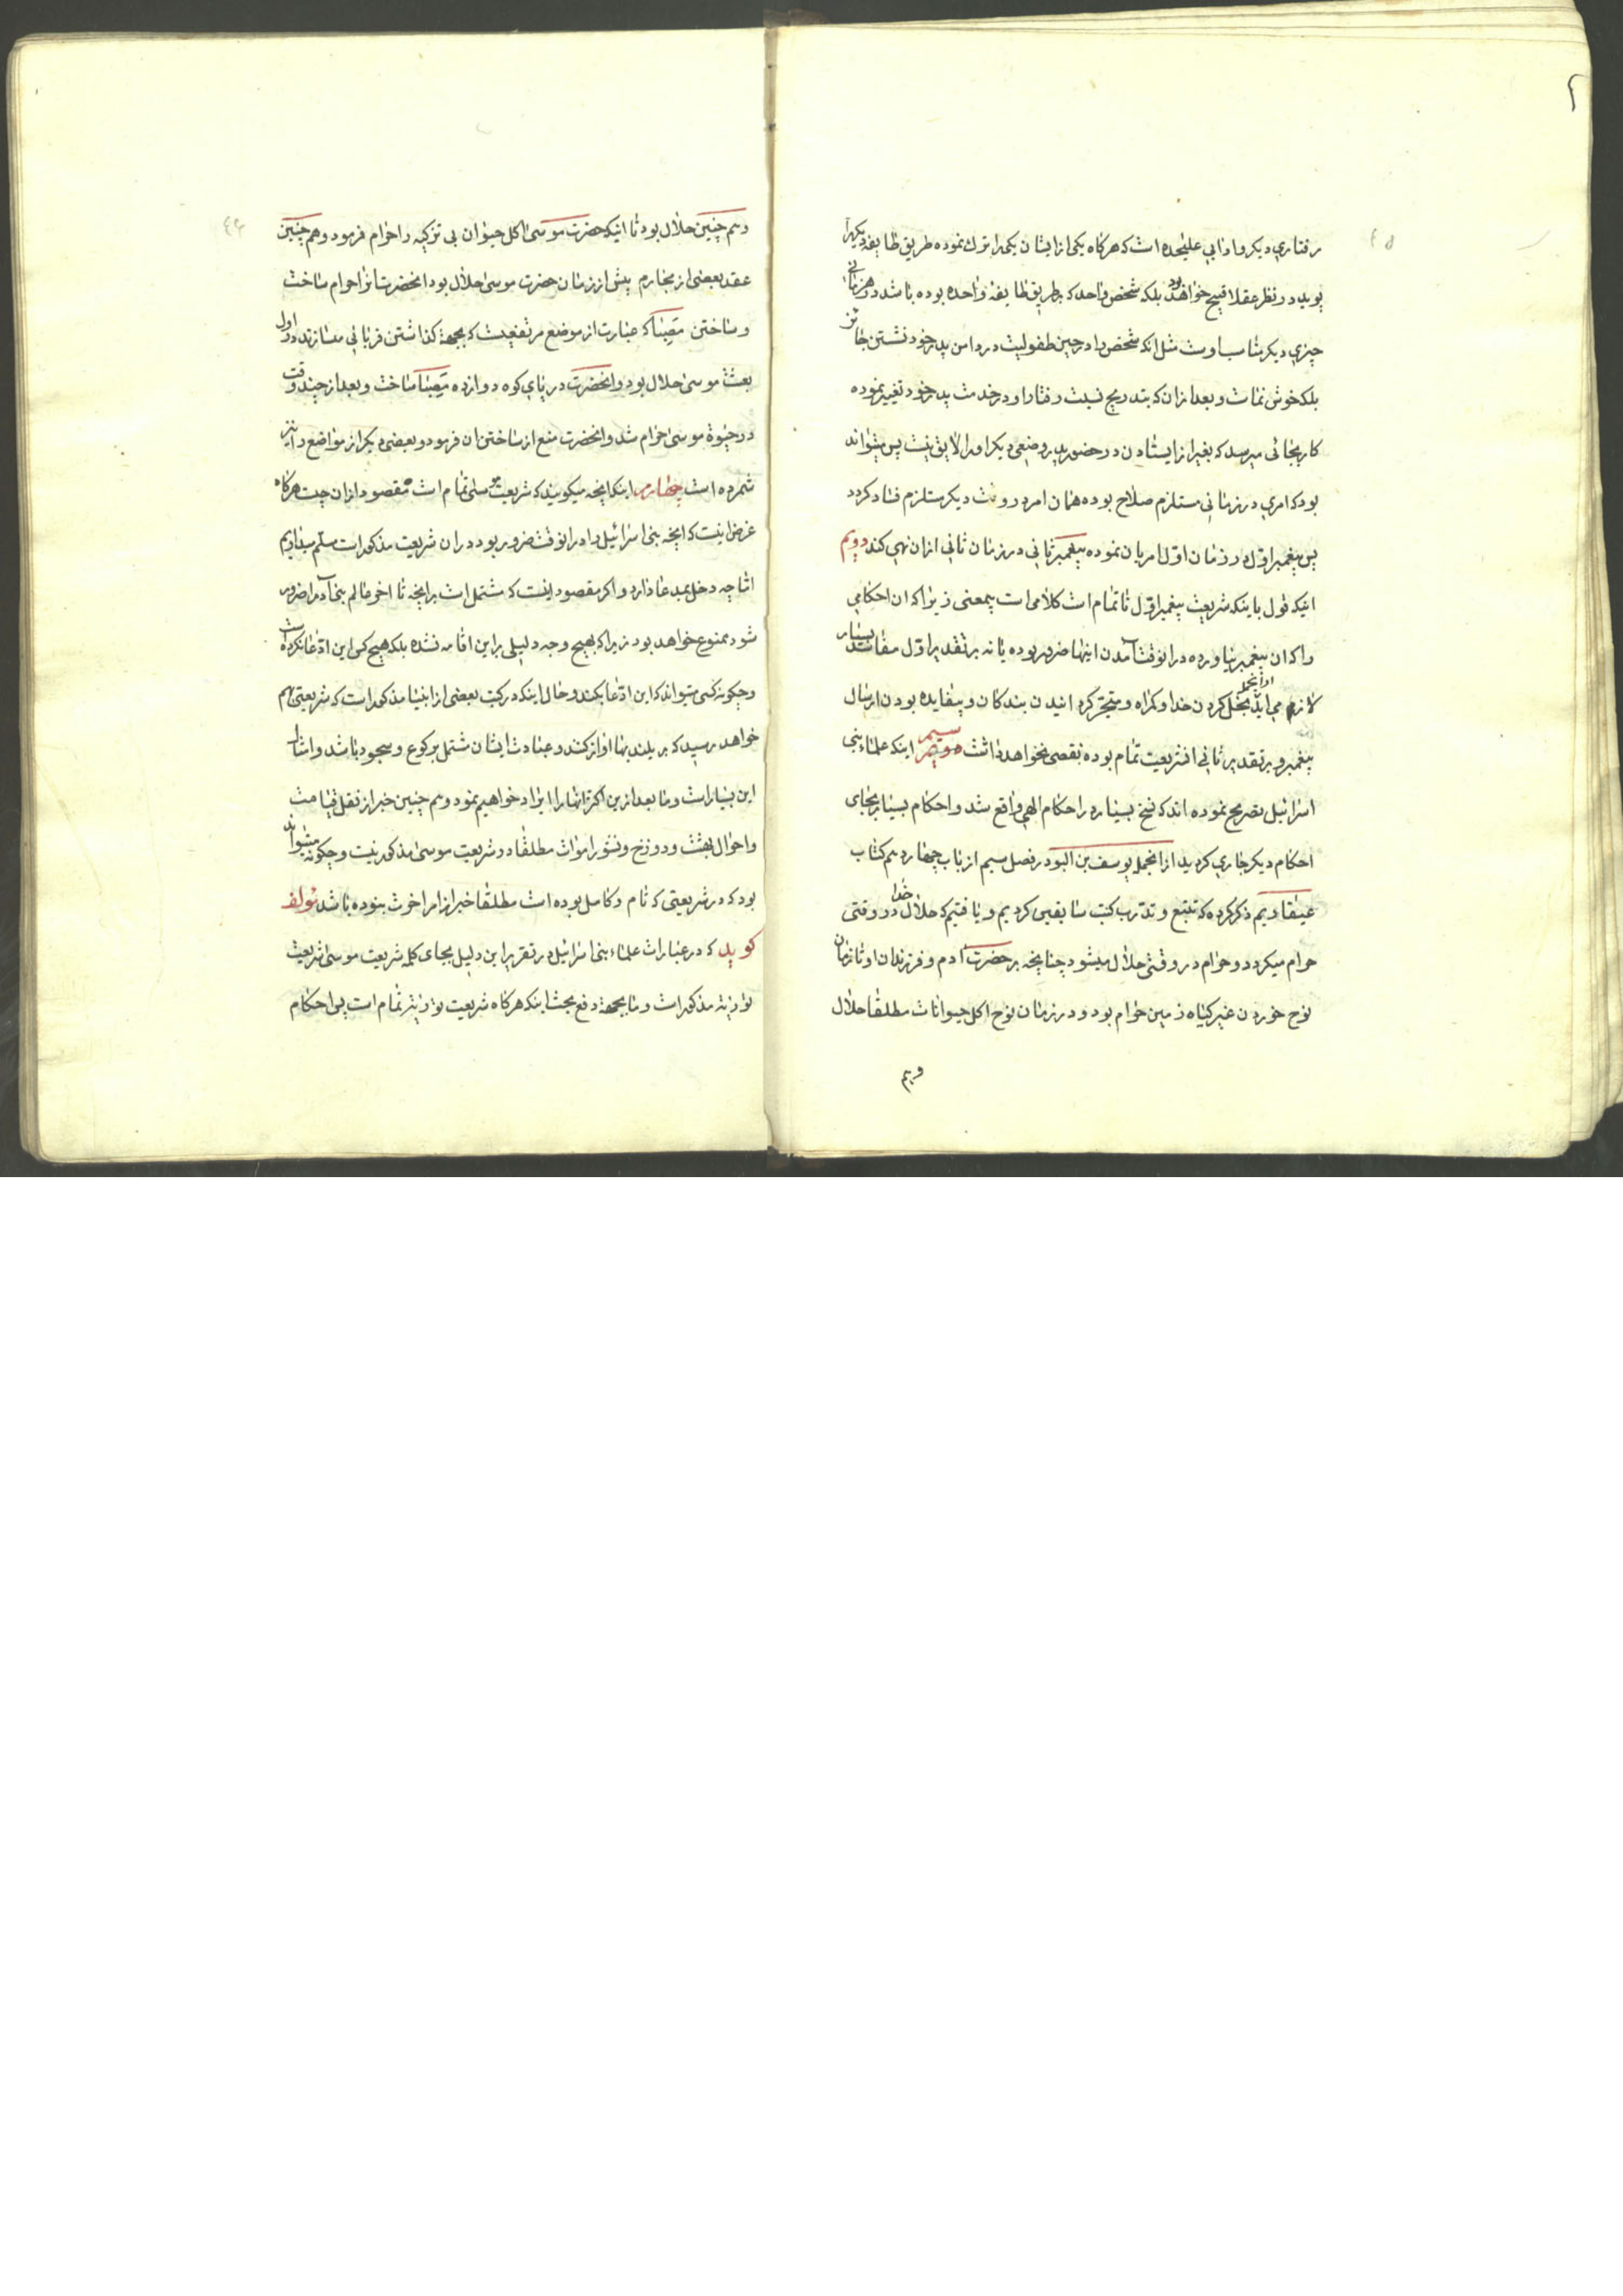 رفتاری دیکر و ادابی علیٰحده است که هرکاه یکی از ایشان یکی را ترک نموده طریق طایفه دیکر را
پوید در نظر عقلا قبیح خواهد بود بلکه شخص واحد که بطریق طایفهٔ واحده بوده باشد در هر زمانی
چیزی دیکر مناسب اوست مثل انکه شخص را در حین طفولیت در دامن پدر خود نشستن جایز
بلکه خوش نماست و بعد از ان که بتدریج نسبت رفتار او در خدمت پدر خود تغییر نموده
کار بجائی میرسد که بغیر از ایستادن در حضور پدر وضعی دیکر او را لایق نیست پس میتواند
بود که امری در زمانی مستلزم صلاح بوده همان امر در وقت دیکر مستلزم فساد کردد
پس پیغمبر اوّل در زمان اوّل امر بان نموده پیغمبر ثانی در زمان ثانی از ان نهی کند دویم
اینکه قول باینکه شریعت پیغمبر اوّل ناتمام است کلامی است بیمعنی زیرا که ان احکامی
را که ان پیغمبر نیاورده در انوقت آمدن اینها ضرور بوده یا نه بر تقدیر اوّل مفاسد بسیار
لازم می اید از انجمله بخل کردن خدا و کمراه و متحیّر کردانیدن بندکان و بیفایده بودن ارسال
پیغمبر و بر تقدیر ثانی ان شریعت تمام بوده نقصی نخواهد داشت سیم اینکه علماء بنی
اسرائیل تصریح نموده اند که نسخ بسیار در احکام الهی واقع شد و احکام بسیار بجای
احکام دیکر جاری کردید از انجمله یوسف بن البو در فصل سیم از باب چهاردهم کتاب
عیقادیم ذکر کرده که تتبع و تدرب کتب سابقین کردیم و یافتیم که حلال خدا در وقتی
حرام میکردد و حرام در وقتی حلال میشود چنانچه بر حضرت آدم و فرزندان او تا زمان
نوح خوردن غیر کیاه زمین حرام بود و در زمان نوح اکل حیوانات مطلقا حلال
و هم
و هم چنین حلال بود تا اینکه حضرت موسی اکل حیوان بی تزکیه را حرام فرمود و هم چنین
عقد بعضی از محارم پیش از زمان حضرت موسی حلال بود انحضرت انرا حرام ساخت
و ساختن مَصِّیبا که عبارت از موضع مرتفعیست که بجههٔ کذاشتن قربانی میسازند در اول
بعثت موسی حلال بود و انحضرت در پای کوه دوازده مصیبا ساخت و بعد از چند وقت
در حیوة موسی حرام شد و انحضرت منع از ساختن ان فرمود و بعضی دیکر از مواضع را نیز
شمرده است چهارم اینکه انچه میکویند که شریعت موسی تمام است مقصود از ان چیست هرکاه
غرض اینست که انچه بنی اسرائیل را در انوقت ضرور بود در ان شریعت مذکور است مسلّم میداریم
امّا چه دخل بمدعا دارد و اکر مقصود اینست که مشتمل است بر انچه تا اخر عالم بنی آدم را ضرور
شود ممنوع خواهد بود زیرا که بهیچ وجه دلیلی بر این اقامه نشده بلکه هیچ کس این ادّعا نکرده است
و چکونه کسی میتواند که این ادّعا بکند و حال اینکه در کتب بعضی از انبیا مذکور است که شریعتی بهم
خواهد رسید که بر بلندیها اواز کنند و عبادت ایشان مشتمل بر رکوع و سجود باشد و امثال
این بسیار است و ما بعد از این اکثر انها را ایراد خواهیم نمود و هم چنین خبر از نقل قیامت
و احوال بهشت و دوزخ و نشور اموات مطلقا در شریعت موسی مذکور نیست و چکونه میتواند
بود که در شریعتی که تام و کامل بوده است مطلقا خبر از امر اخرت ننموده باشد مؤلف
کوید که در عبارات علماء بنی اسرائیل در تقریر این دلیل بجای کلمه شریعت موسی شریعت
توریة مذکور است و ما بجههٔ دفع بحث اینکه هرکاه شریعت توریة تمام است پس احکام